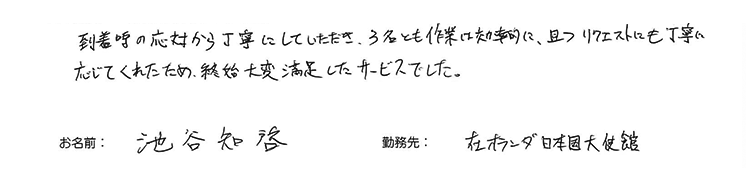 到着時の応対から丁寧にしていただき、3名とも作業は効率的に、且つリクエストにも丁寧に
応じてくれたため、終始大変満足したサービスでした。
お名前： 池谷知啓 勤務先： 在オランダ日本国大使館